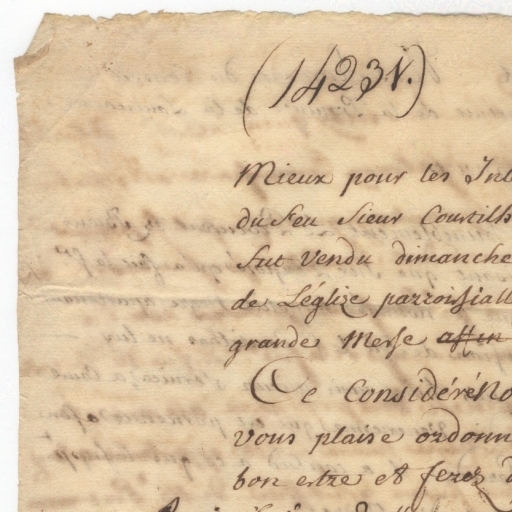 (1423 V.)
Mieux pour les Int
du feu Sieur Courtilh
fut vendu dimanche
de Léglize parroissiall
grande Messe affin
Ce Considéré No
vous plaise ordonn
bon estre et ferez